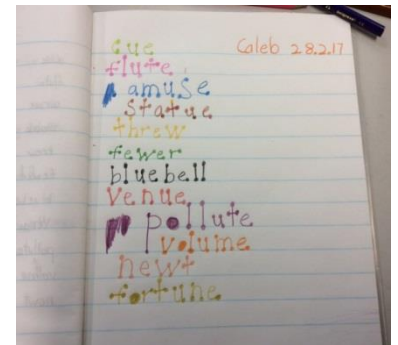 cue Caleb 28.2.17
flute
amuse
statue
threw
fewer
bluebell
venue
pollute
volume
newt
fortune